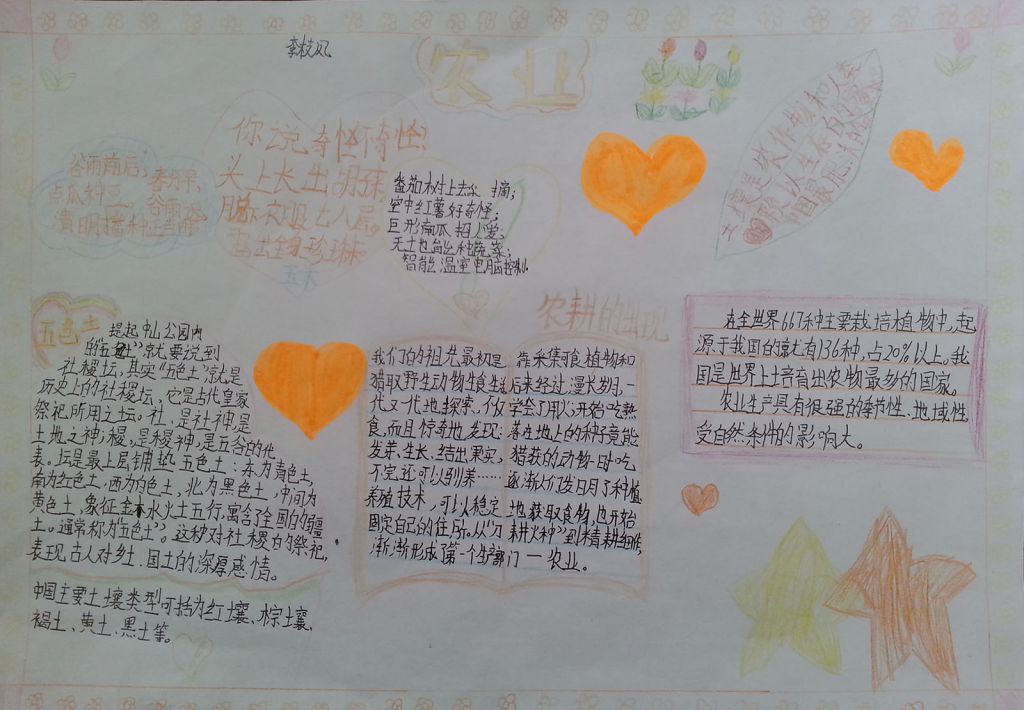 李枝凤
农业
谷雨前后,
点瓜种豆。
春分早,
谷雨迟,
清明播种正当时
你说奇怪不奇怪?
头上长出胡珠
脑
玉米
番茄树上去采摘;
空中红薯好奇怪;
巨形南瓜招人爱;
无土也能种蔬菜;
智能温室电脑控制。
土壤是农作物和人
类赖以生存
五色土
提起中山公园内
的"五色土"就要说到
社稷坛,其实"五色土"就是
历史上的社稷坛,它是古代皇家
祭祀所用之坛。社,是社神,是
土地之神;稷,是稷神,是五谷的代
表。坛是最上层铺垫五色土:东为青色土,
南为红色土,西为白色土,北为黑色土,中间为
黄色土,象征金木水火土五行,寓含了全国的疆
土。通常称为"五色土"。这种对社稷的祭祀,
表现古人对乡土、国土的深厚感情。
中国主要土壤类型可括为红壤、棕壤、
褐土、黄土、黑土等。
农耕的出现
我们的祖先最初是靠采集可食植物和
猎取野生动物生食生活后来经过漫长岁月,一
代又一代地探索,不仅学会了用火,开始吃熟
食,而且惊奇地发现:落在地上的种子竟能
发芽、生长、结出果实,猎获的动物一时吃
不完还可以驯养……逐渐人们发明了种植
养殖技术,可以稳定地获取食物,也开始
固定自己的住所。从"刀耕火种"到精耕细作,
渐渐形成了第一个生产部门—农业。
在全世界667种主要栽培植物中,起
源于我国的就有136种,占20%以上。我
国是世界上培育出农物最多的国家。
农业生产具有很强的季节性、地域性,
受自然条件的影响大。